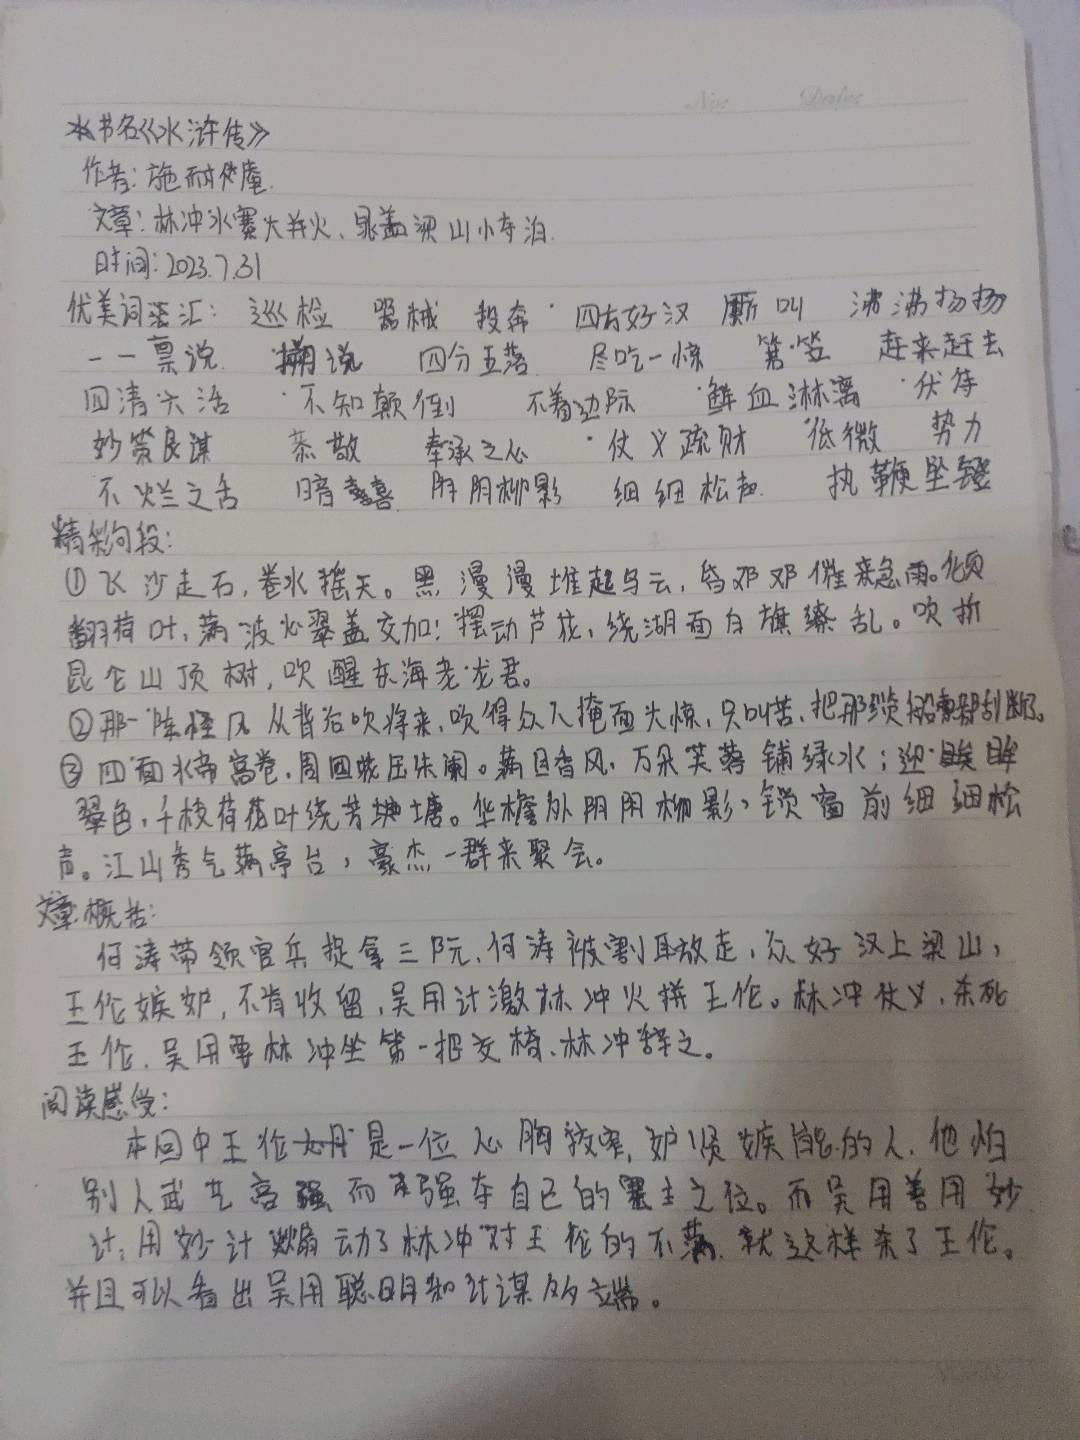 No: Date:
书名《水浒传》
作者：施耐庵.
文章：林冲水寨大并火、晁盖梁山小夺泊.
时间：2023.7.31
优美词汇：巡检 器械 投奔 四方好汉 厮叫 沸沸扬扬
一一禀说 搠说 四分五落 尽吃一惊 赶来赶去
四清六活 不知颠倒 不着边际 鲜血淋漓 伏侍
妙策良谋 恭敬 奉承之心 仗义疏财 低微 势力
不烂之舌 暗喜 阴阴柳影 细细松声 执鞭坠镫
精彩句段：
①飞沙走石，卷水摇天。黑漫漫堆起乌云，昏邓邓催来急雨。倾
翻荷叶，满波心翠盖交加！摆动芦花，绕湖面白旗缭乱。吹折
昆仑山顶树，吹醒东海老龙君。
②那一阵怪风从背后吹将来，吹得众人掩面大惊，只叫苦，把那缆船索都刮断了。
③四面水帘高卷，周回花压朱阑。满目香风，万朵芙蓉铺绿水；迎眸
翠色，千枝荷花叶绕芳塘。华檐外阴阴柳影，锁窗前细细松
声。江山秀气满亭台，豪杰一群来聚会。
文章概括：
何涛带领官兵捉拿三阮，何涛被割耳放走，众好汉上梁山，
王伦嫉妒，不肯收留，吴用计激林冲火拼王伦。林冲仗义，杀死
王伦，吴用要林冲坐第一把交椅，林冲辞之。
阅读感受：
本回中王伦是一位心胸较窄，妒贤嫉能的人，他怕
别人武艺高强而夺自己的寨主之位。而吴用善用妙
计，用妙计煽动了林冲对王伦的不满，就这样杀了王伦。
并且可以看出吴用聪明和计谋多端。